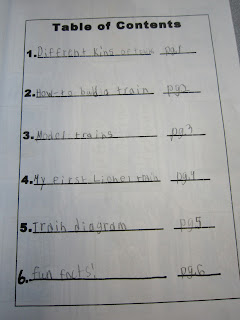 Table of Contents
1. Diffrent kins of train pg1
2. How to build a train pg2
3. Model trains pg.3
4. My first Lionel train pg.4
5. Train diagram pg.5
6. fun facts! pg.6